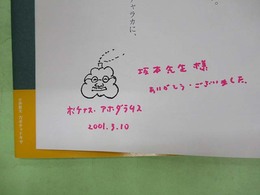 ャラカに、
坂本先生様
ありがとう・ございました。
ホケナス・アホダラサス
2001.9.10